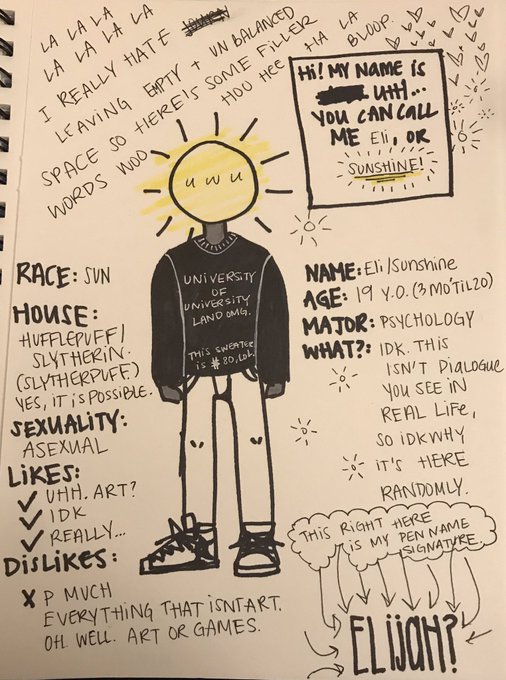 LA LA LA
LA LA LA LA LA
I REALLY HATE
LEAVING EMPTY + UNBALANCED
SPACE SO HERE'S SOME FILLER
WORDS WOO HOO HEE HA LA BLOOP.
Hi! MY NAME IS
UHH...
YOU CAN CALL
ME Eli, OR
SUNSHINE!
u w u
UNIVERSITY
OF
UNIVERSITY
LAND OMG.
THIS SWEATER
IS #80, LOL.
RACE: SUN
HOUSE:
HUFFLEPUFF/
SLYTHERIN.
(SLYTHERPUFF)
YES, IT IS POSSIBLE.
SEXUALITY:
ASEXUAL
LIKES:
✓ UHH. ART?
✓ IDK
✓ REALLY...
DISLIKES:
X P MUCH
EVERYTHING THAT ISNT ART.
OH. WELL. ART OR GAMES.
NAME: Eli/Sunshine
AGE: 19 Y.O. (3 MO 'TIL 20)
MAJOR: PSYCHOLOGY
WHAT?: IDK. THIS
ISN'T DIALOGUE
YOU SEE IN
REAL LIFE,
SO IDK WHY
IT'S HERE
RANDOMLY.
THIS RIGHT HERE
IS MY PEN NAME
SIGNATURE.
ELIJAH?